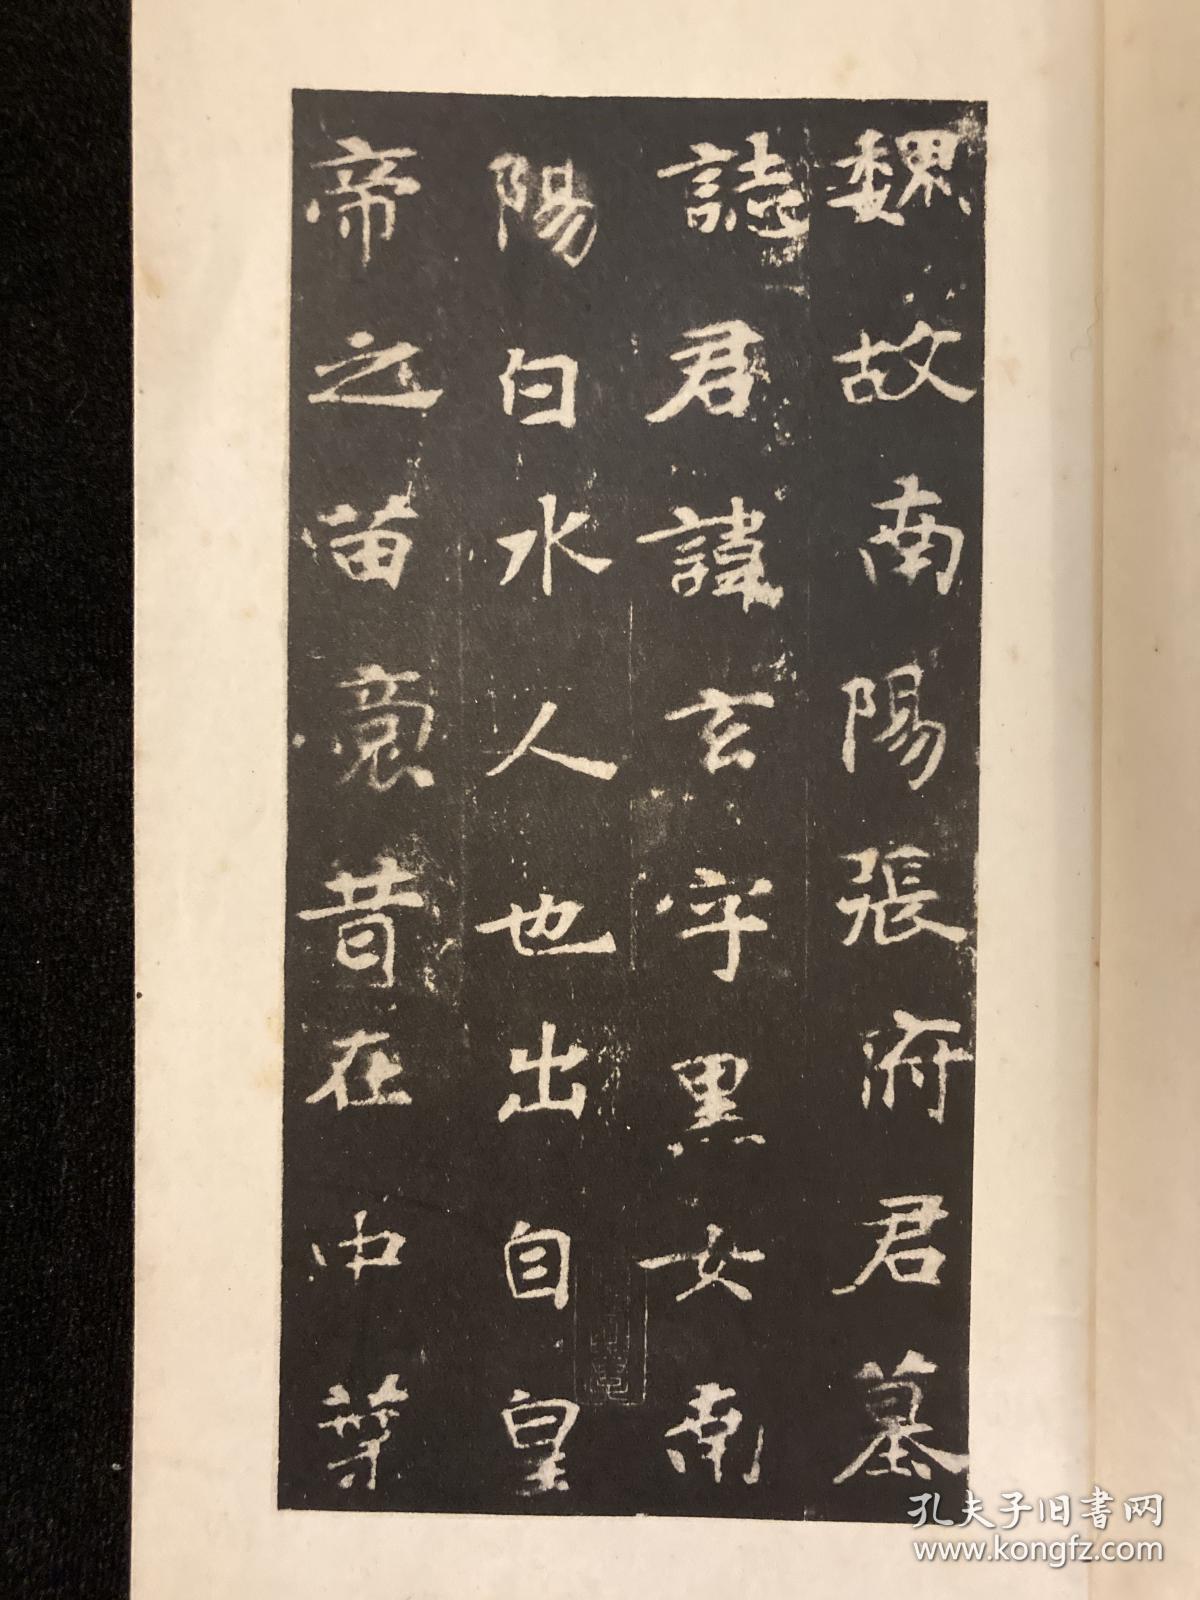 魏故南陽張府君墓
誌君諱玄字黑女南
陽白水人也出自皇
帝之苗裔昔在中葉
孔夫子旧书网
www.kongfz.com